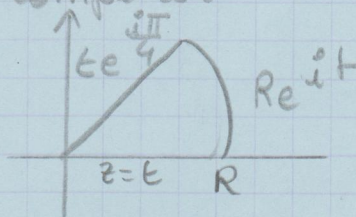 te^{iπ/4}
Re^{it}
z=t
R